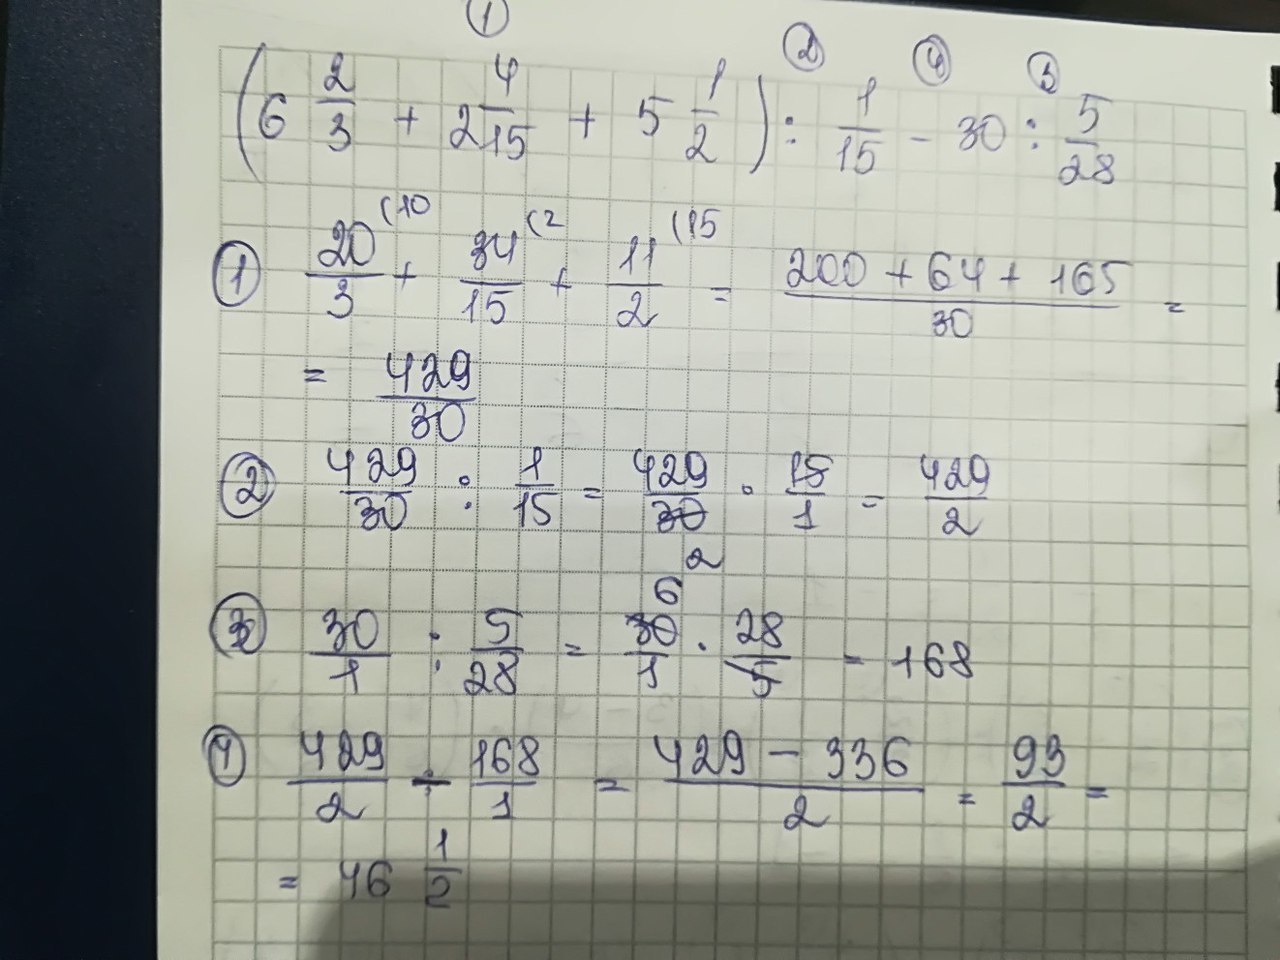 ① ② ④ ③
(6 2/3 + 2 4/15 + 5 1/2) : 1/15 - 30 : 5/28
① 20/3 (10 + 34/15 (2 + 11/2 (15 = (200 + 64 + 165)/30 =
= 429/30
② 429/30 : 1/15 = 429/30 · 15/1 = 429/2
2
6
③ 30/1 : 5/28 = 30/1 · 28/5 = 168
④ 429/2 - 168/1 = (429 - 336)/2 = 93/2 =
= 46 1/2